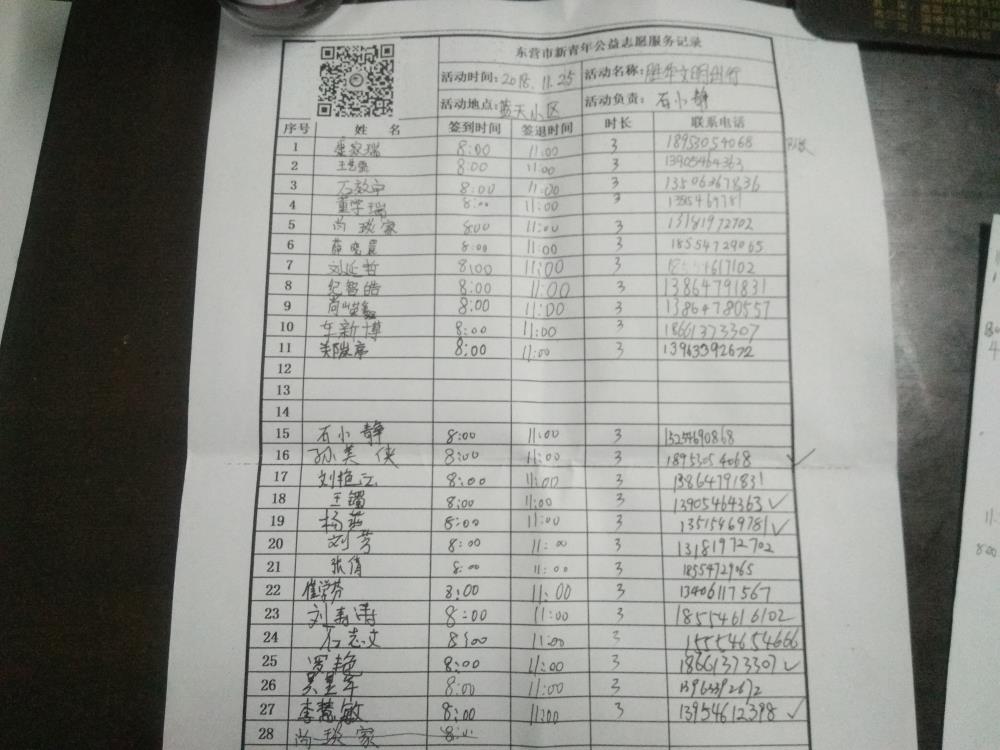 东营市新青年公益志愿服务记录
活动时间: 2018.11.25 活动名称:
活动地点: 蓝天小区 活动负责: 石小静
序号 姓名 签到时间 签退时间 时长 联系电话
1 8:00 11:00 3 18953054068
2 8:00 11:00 3 13905464363
3 8:00 11:00 3 13506367836
4 董学瑞 8:00 11:00 3 13515469781
5 尚琰家 8:00 11:00 3 13181972702
6 薛晓晨 8:00 11:00 3 18554729065
7 刘延哲 8:00 11:00 3
8 纪智皓 8:00 11:00 3 13864791831
9 8:00 11:00 3 13864780557
10 车新博 8:00 11:00 3 18661373307
11 8:00 11:00 3 13963392672
12
13
14
15 石小静 8:00 11:00 3 13254690868
16 孙美侠 8:00 11:00 3 18953054068 ✓
17 刘艳云 8:00 11:00 3 13864791831
18 王镯 8:00 11:00 3 13905464363 ✓
19 杨燕 8:00 11:00 3 13515469781 ✓
20 刘芳 8:00 11:00 3 13181972702
21 张倩 8:00 11:00 3 18554729065
22 崔学芬 8:00 11:00 3 13406117567
23 刘寿涛 8:00 11:00 3 18554616102
24 石志文 8:00 11:00 3 15554654666
25 罗艳 8:00 11:00 3 18661373307 ✓
26 8:00 11:00 3 13963392672
27 李慧敏 8:00 11:00 3 13954612398 ✓
28 尚琰家 8:00